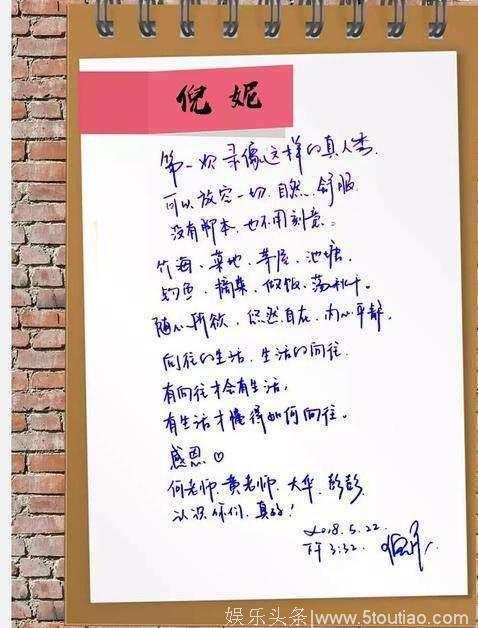 倪妮
第一次录像这样的真人秀,
可以放空一切.自然.舒服
没有脚本.也不用刻意.
竹海、菜地、茅屋、池塘,
钓鱼、摘菜、做饭、荡秋千。
随心所欲.悠然自在.内心平静.
向往的生活.生活的向往.
有向往才会有生活,
有生活才懂得如何向往。
感恩♡
何老师.黄老师.大华.彭彭
认识你们.真好!
2018.5.22.
下午3:32.
娱乐头条|www.5toutiao.com